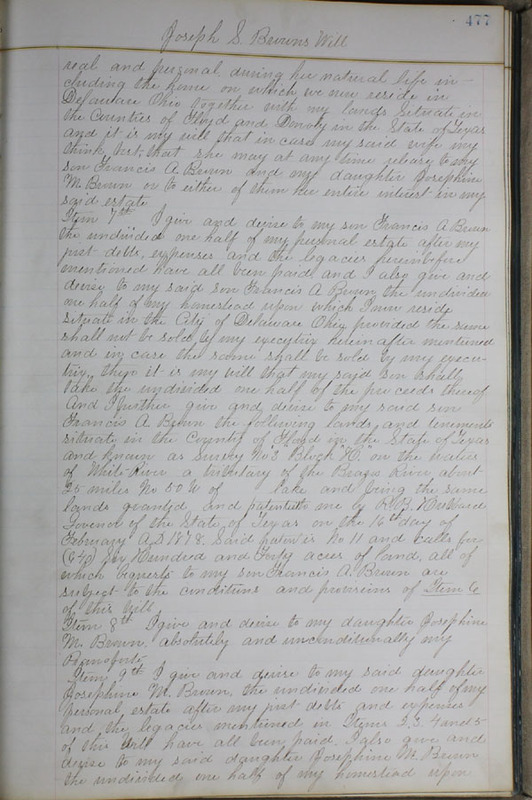 477
Joseph S. Browns Will
real and personal during her natural life in-
cluding the home on which we now reside in
Delaware Ohio together with my lands situate in
the Counties of Floyd and Donoly in the State of Texas
and it is my will that in case my said wife may
think best that she may at any time release to my
son Francis A Brown and my daughter Josephine
M. Brown or to either of them her entire interest in my
said estate
Item 7th I give and devise to my son Francis A Brown
the undivided one half of my personal estate after my
just debts, expenses and the legacies hereinbefore
mentioned have all been paid and I also give and
devise to my said son Francis A Brown the undivided
one half of my homestead upon which I now reside
situate in the City of Delaware Ohio, provided the same
shall not be sold by my executrix hereinafter mentioned
and in case the same shall be sold by my execu-
trix, then it is my will that my said son shall
take the undivided one half of the proceeds thereof
And I further give and devise to my said son
Francis A Brown the following lands and tenements
situate in the County of Floyd in the State of Texas
and known as Survey No 3 Block H. on the waters
of White River a tributary of the Brazos River about
25 miles No 50 W of lake and being the same
lands granted, and patented to me by R.B. Hubbard
Governor of the State of Texas on the 16th day of
February A.D 1878. Said patent is No 11 and calls for
(640) Six Hundred and Forty acres of land, all of
which bequests to my son Francis A. Brown are
subject to the conditions and provisions of Item 6
of this will
Item 8th I give and devise to my daughter Josephine
M. Brown, absolutely and unconditionally my
Pianoforte
Item 9th I give and devise to my said daughter
Josephine M. Brown, the undivided one half of my
personal estate after my just debts and expenses
and the legacies mentioned in Items 2.3. 4 and 5
of this will have all been paid. I also give and
devise to my said daughter Josephine M. Brown
the undivided one half of my homestead upon